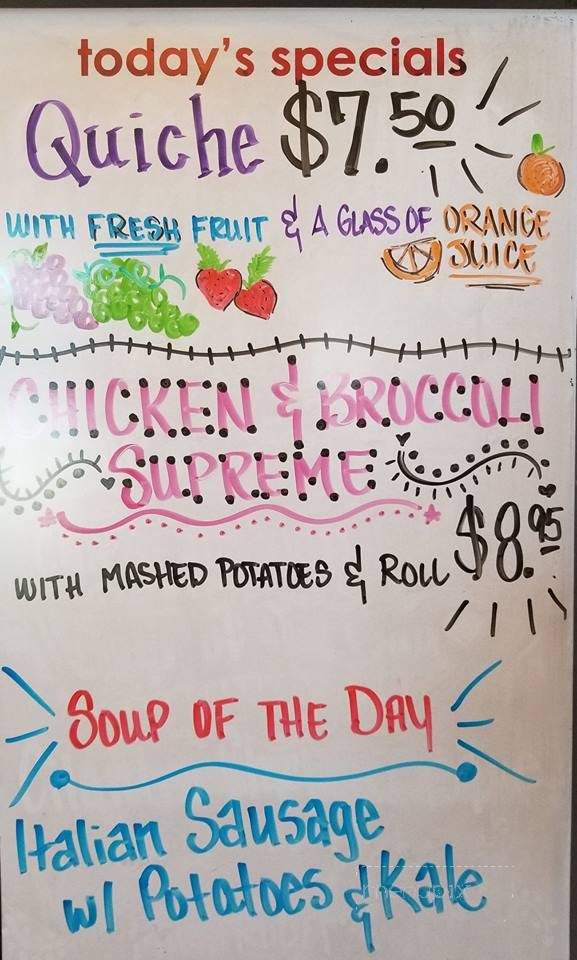 today's specials
Quiche $7.50
WITH FRESH FRUIT & A GLASS OF ORANGE
JUICE
CHICKEN & BROCCOLI
SUPREME
$8.95
WITH MASHED POTATOES & ROLL
SOUP OF THE DAY
Italian Sausage
w/ Potatoes & Kale